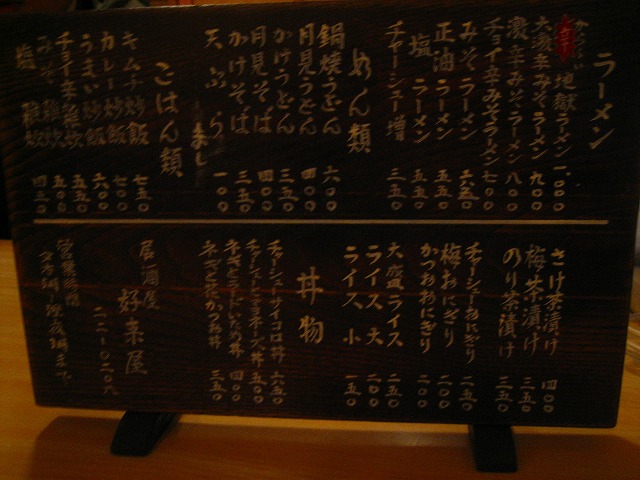 ラーメン
地獄ラーメン 一,〇〇〇
大激辛みそラーメン 九〇〇
激辛みそラーメン 八〇〇
チョイ辛みそラーメン 七〇〇
みそラーメン 六五〇
正油ラーメン 五五〇
塩ラーメン 五五〇
チャーシュー増 三五〇
めん類
鍋焼うどん 六〇〇
月見うどん 四〇〇
かけうどん 三五〇
月見そば 四〇〇
かけそば 三五〇
天ぷら 一〇〇
ごはん類
キムチ炒飯 七五〇
カレー炒飯 七〇〇
うまい炒飯 六〇〇
チョイ辛雑炊 五五〇
みそ雑炊 五〇〇
塩雑炊 四五〇
さけ茶漬け 四〇〇
梅茶漬け 三五〇
のり茶漬け 三五〇
チャーシューおにぎり 二五〇
梅おにぎり 二〇〇
かつおおにぎり 二〇〇
大盛ライス 二五〇
ライス大 二〇〇
ライス小 一五〇
丼物
チャーシューサイコロ丼 六五〇
五〇〇
四〇〇
三五〇
居酒屋
好来屋
二二-〇二〇八
営業時間